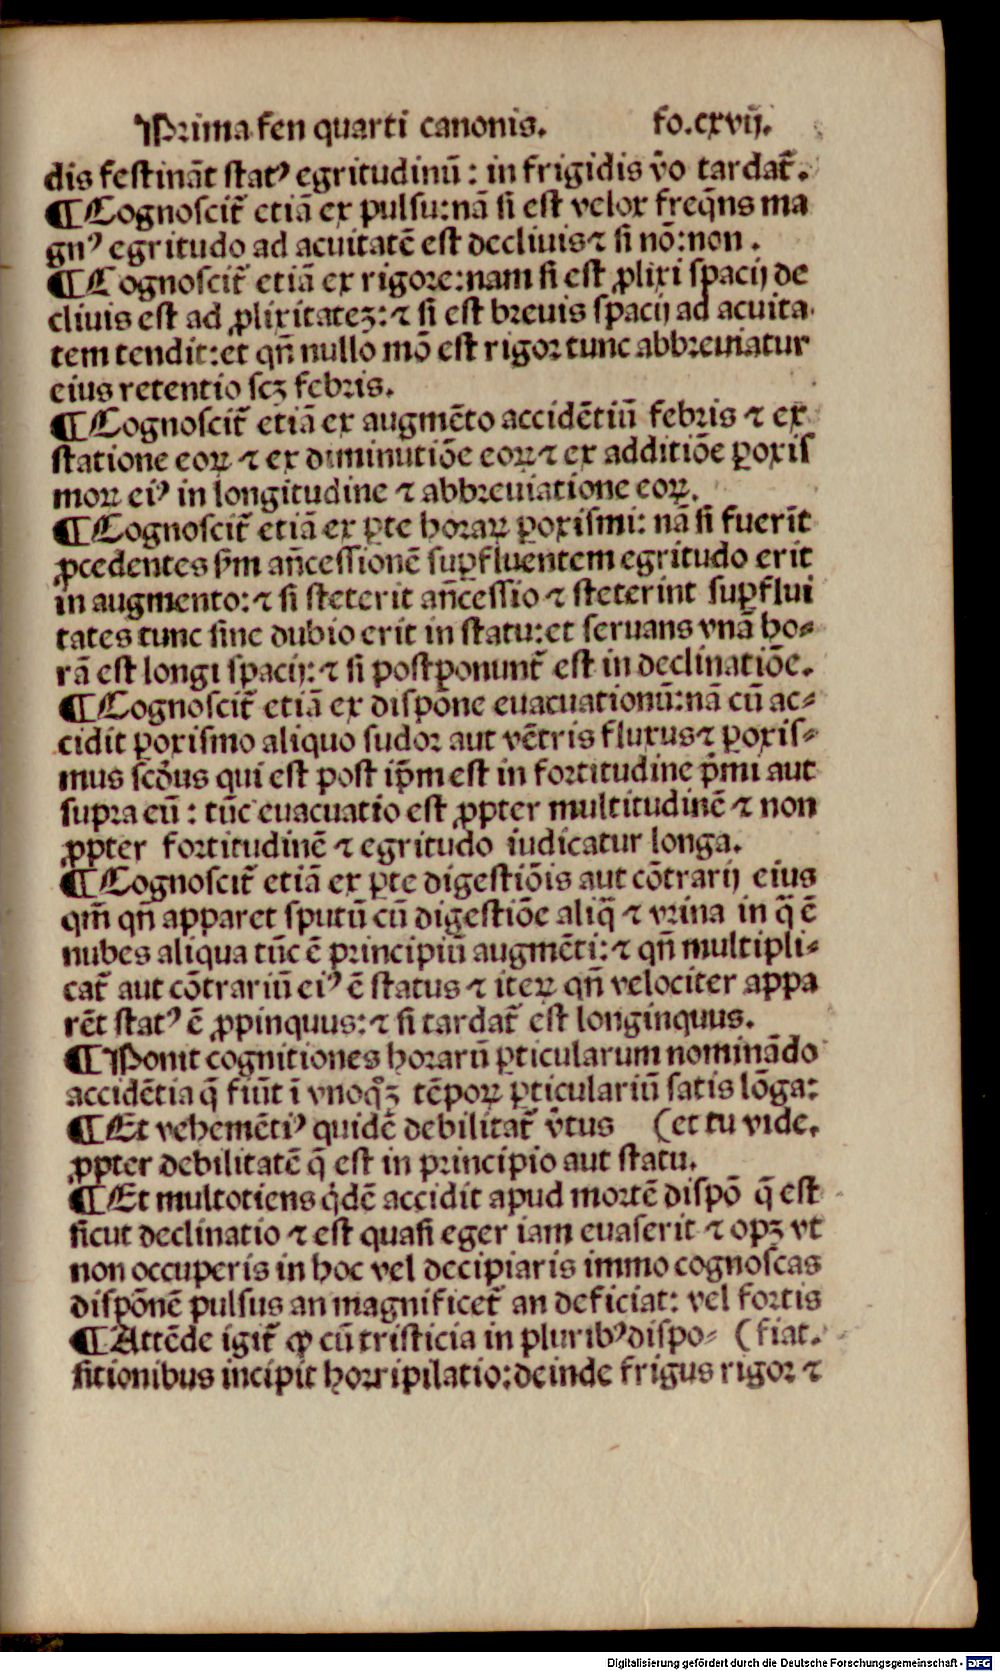 Prima fen quarti canonis. fo.cxvij.
dis festināt statꝰ egritudinū : in frigidis v̄o tardat᷑.
¶ Cognoscit᷑ etiā ex pulsu:nā si est velox freq̄ns ma
gnꝰ egritudo ad acuitatē est decliuis ⁊ si nō:non .
¶ Cognoscit᷑ etiā ex rigore:nam si est ꝓlixi spacij de
cliuis est ad ꝓlixitateꝫ: ⁊ si est breuis spacij ad acuita
tem tendit:et qn̄ nullo mō est rigor tunc abbreuiatur
eius retentio scꝫ febris.
¶ Cognoscit᷑ etiā ex augmēto accidētiū febris ⁊ ex
statione eoꝝ ⁊ ex diminutiōe eoꝝ ⁊ ex additiōe ꝑoxis
moꝝ eiꝰ in longitudine ⁊ abbreuiatione eoꝝ.
¶ Cognoscit᷑ etiā ex ꝑte horaꝝ ꝑoxismi: nā si fuerīt
p̄cedentes ẜm an̄cessionē suꝑfluentem egritudo erit
in augmento: ⁊ si steterit an̄cessio ⁊ steterint suꝑflui
tates tunc sine dubio erit in statu:et seruans vnā ho⸗
rā est longi spacij: ⁊ si postponunt᷑ est in declinatiōe.
¶ Cognoscit᷑ etiā ex dispōne euacuationū:nā cū ac⸗
cidit ꝑoxismo aliquo sudor aut vētris fluxus ⁊ ꝑoxis⸗
mus scd̄us qui est post ip̄m est in fortitudine p̄mi aut
supra eū : tūc euacuatio est ꝓpter multitudinē ⁊ non
ꝓpter fortitudinē ⁊ egritudo iudicatur longa.
¶ Cognoscit᷑ etiā ex ꝑte digestiōis aut cōtrarij eius
qm̄ qn̄ apparet sputū cū digestiōe aliq̄ ⁊ vrina in q̄ ē
nubes aliqua tūc ē principiū augmēti: ⁊ qn̄ multipli⸗
cat᷑ aut cōtrariū eiꝰ ē status ⁊ iteꝝ qn̄ velociter appa
rēt statꝰ ē ꝓpinquus: ⁊ si tardat᷑ est longinquus.
¶ Ponit cognitiones horarū ꝑticularum nominādo
accidētia q̄ fiūt ī vnoqͦꝫ tēpoꝝ ꝑticulariū satis lōga:
¶ Et vehemētiꝰ quidē debilitat᷑ v̄tus (et tu vide.
ꝓpter debilitatē q̄ est in principio aut statu.
¶ Et multotiens qͥdē accidit apud mortē dispō q̄ est
sicut declinatio ⁊ est quasi eger iam euaserit ⁊ opꝫ vt
non occuperis in hoc vel decipiaris immo cognoscas
dispōnē pulsus an magnificet᷑ an deficiat: vel fortis
¶ Attēde igit᷑ ꝙ cū tristicia in pluribꝰ dispo⸗ (fiat.
sitionibus incipit horripilatio:deinde frigus rigor ⁊
Digitalisierung gefördert durch die Deutsche Forschungsgemeinschaft - DFG